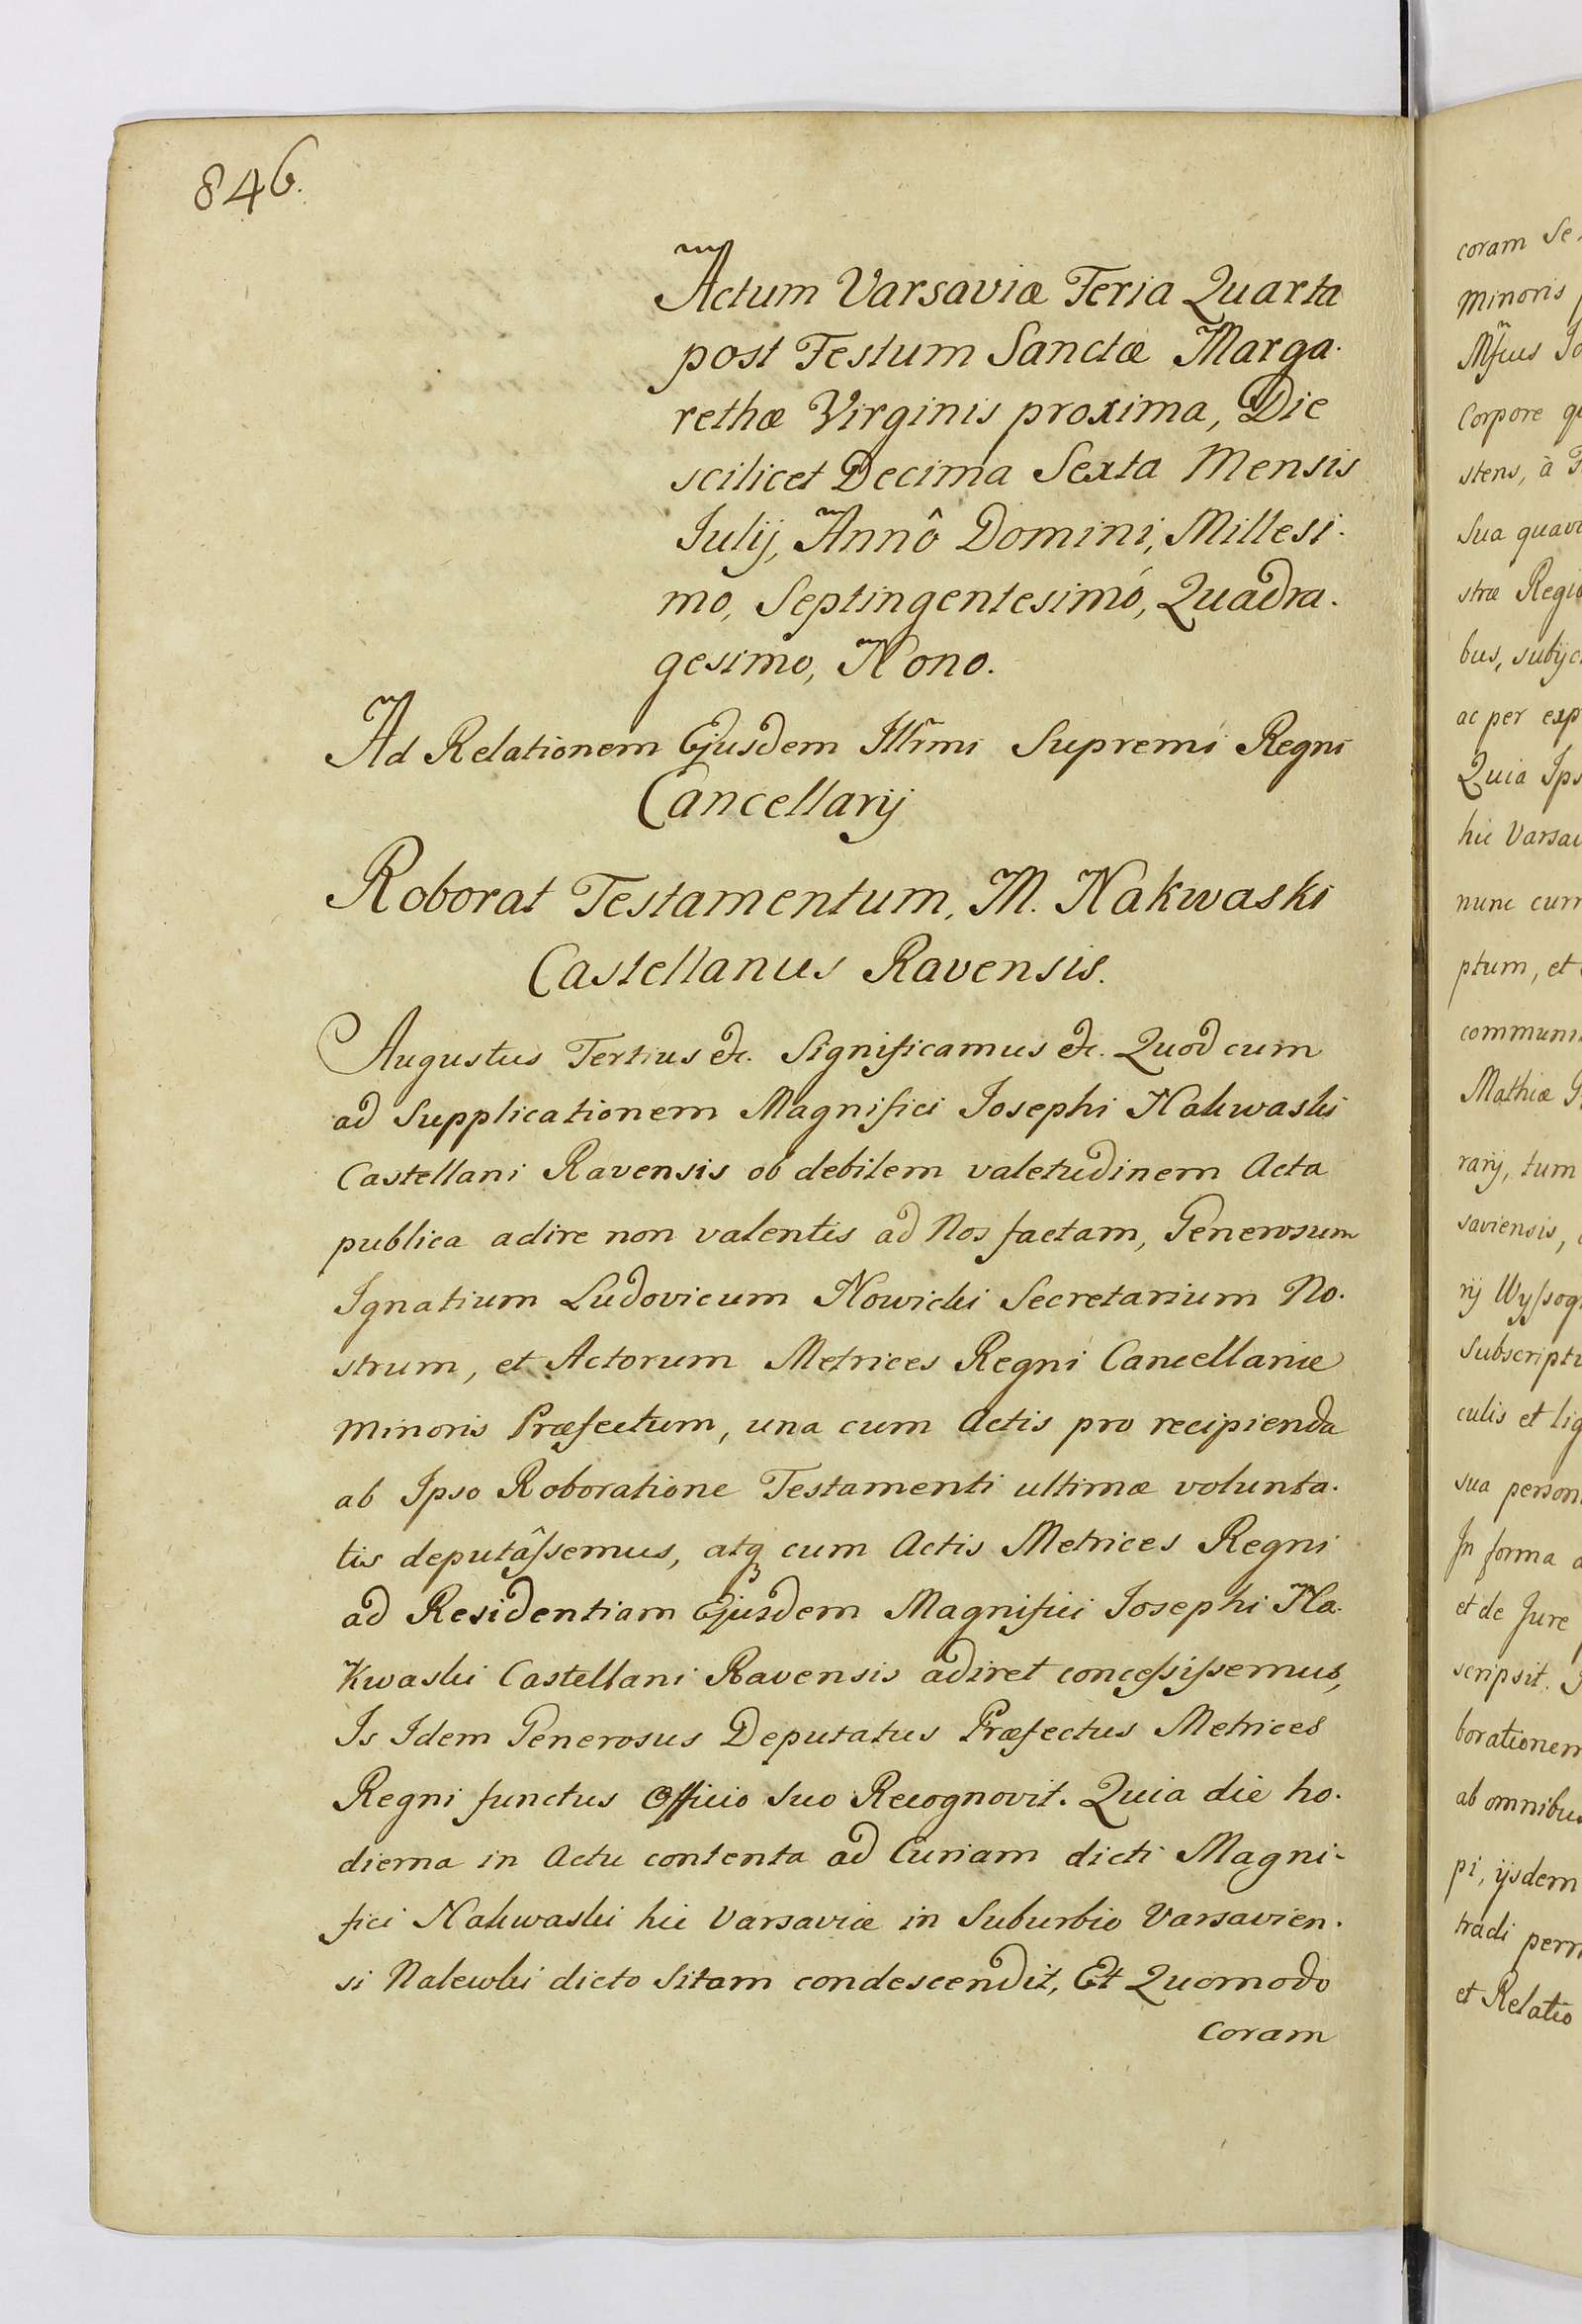 846.
Actum Varsaviæ Feria Quarta
post Festum Sanctæ Marga.
rethæ Virginis proxima, Die
scilicet Decima Sexta Mensis
Iulij, Annô Domini, Millesi.
mo, Septingentesimó, Quadra.
gesimo, Nono.
Ad Relationem Ejusdem Illrmi Supremi Regni
Cancellarij
Roborat Testamentum, M. Nakwaski
Castellanus Ravensis.
Augustus Tertius &c. Significamus &c. Quod cum
ad Supplicationem Magnifici Iosephi Nakwaski
Castellani Ravensis ob debilem valetudinem Acta
publica adire non valentis ad Nos factam, Generosum
Ignatium Ludovicum Nowicki Secretarium No.
strum, et Actorum Metrices Regni Cancellariæ
Minoris Præfectum, una cum Actis pro recipienda
ab Ipso Roboratione Testamenti ultimæ volunta.
tis deputâssemus, atq cum Actis Metrices Regni
ad Residentiam Ejusdem Magnifici Iosephi Na.
Kwaski Castellani Ravensis adiret concessissemus,
Is Idem Generosus Deputatus Præfectus Metrices
Regni functus Officio Suo Recognovit. Quia die ho.
dierna in Actu contenta ad Curiam dicti Magni-
fici Nakwaski hic Varsaviæ in Suburbio Varsavien.
si Nalewki dicto Sitam condescendit, Et Quomodo
coram
coram Se
minoris
Mfcus Jo
Corpore
stens, à
Sua quav
stræ Regi
bus, subijc
ac per exp
Quia Ips
hic Varsav
nunc curr
ptum, et
communi
Mathiæ
rarij, tum
saviensis,
rij Wyssog
Subscript
culis et lig
sua person
In forma
et de Jure
scripsit.
borationem
ab omnibus
pi, ijsdem
tradi perm
et Relatio